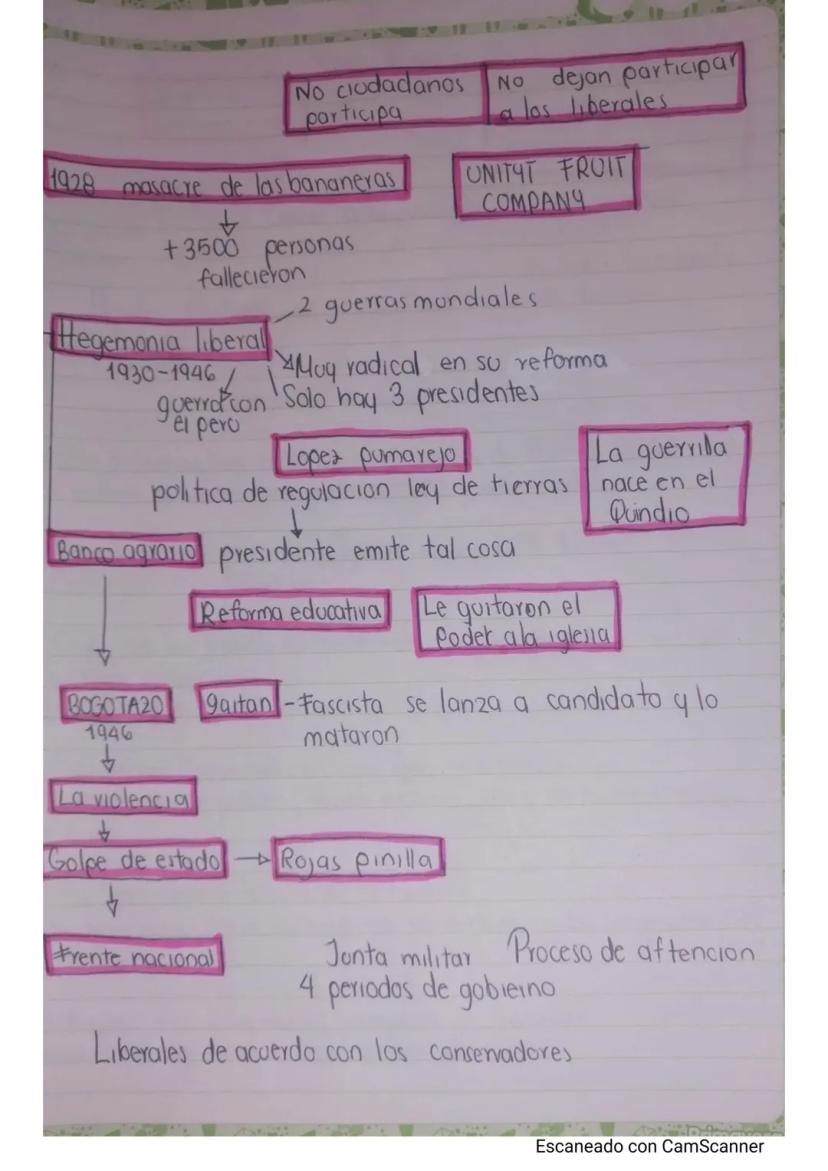 No ciudadanos
participa
No dejan participar
a los liberales
1928 masacre de las bananeras
UNIT4T FRUIT
COMPANY
+3500 personas
fallecieron
2 guerras mundiales
Hegemonia liberal
1930-1946
Muy radical en su reforma
Solo hay 3 presidentes
guerra con
el pero
Lopez pumarejo
politica de regulacion ley de tierras
La guerrilla
nace en el
Quindio
Banco agrario presidente emite tal cosa
Reforma educativa
Le quitaron el
Poder a la iglesia
BOGOTAZO
1946
gaitan - Fascista se lanza a candidato y lo
mataron
La violencia
Golpe de estado → Rojas pinilla
Frente nacional
Junta militar Proceso de aftencion
4 periodos de gobierno
Liberales de acuerdo con los conservadores
Escaneado con CamScanner